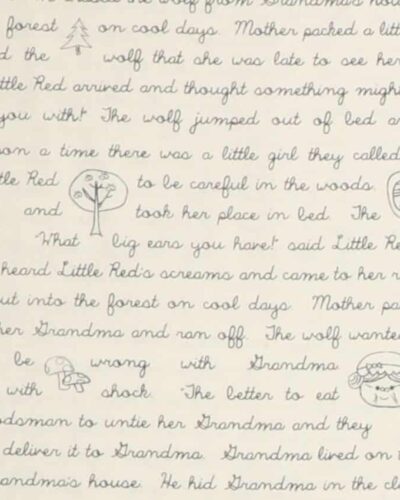 the wolf from Grandma's
forest on cool days. Mother packed a
the wolf that she was late to see her
Red arrived and thought something
you with!" The wolf jumped out of bed
a time there was a little girl they called
Red to be careful in the woods.
and took her place in bed. The
"What big ears you have!" said Little
heard Little Red's screams and came to her
into the forest on cool days. Mother
her Grandma and ran off. The wolf wanted
be wrong with Grandma
with shock. "The better to eat
to untie her Grandma and they
deliver it to Grandma. Grandma lived on
house. He hid Grandma in the